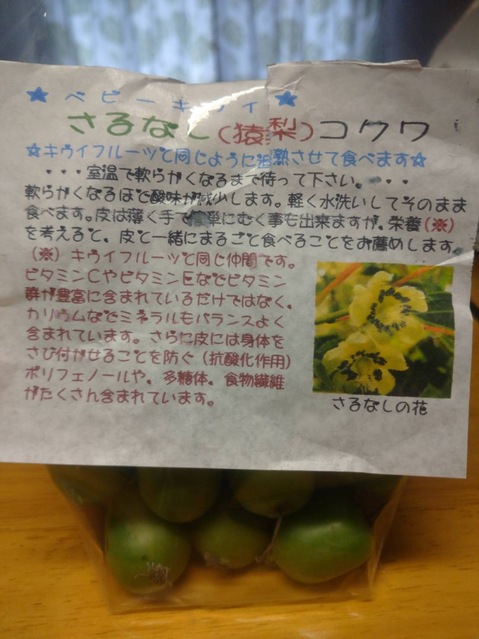 ★ベビーキウイ★
さるなし(猿梨)コクワ
☆キウイフルーツと同じように追熟させて食べます☆
・・・室温で軟らかくなるまで待って下さい。・・
軟らかくなるほど酸味が減少します。軽く水洗いしてそのまま
食べます。皮は薄く手で簡単にむく事も出来ますが、栄養(※)
を考えると、皮と一緒にまるごと食べることをお薦めします。
(※)キウイフルーツと同じ仲間です。
ビタミンCやビタミンEなどビタミン
群が豊富に含まれているだけではなく、
カリウムなどミネラルもバランスよく
含まれています。さらに皮には身体を
さび付かせることを防ぐ(抗酸化作用)
ポリフェノールや、多糖体、食物繊維
がたくさん含まれています。
さるなしの花